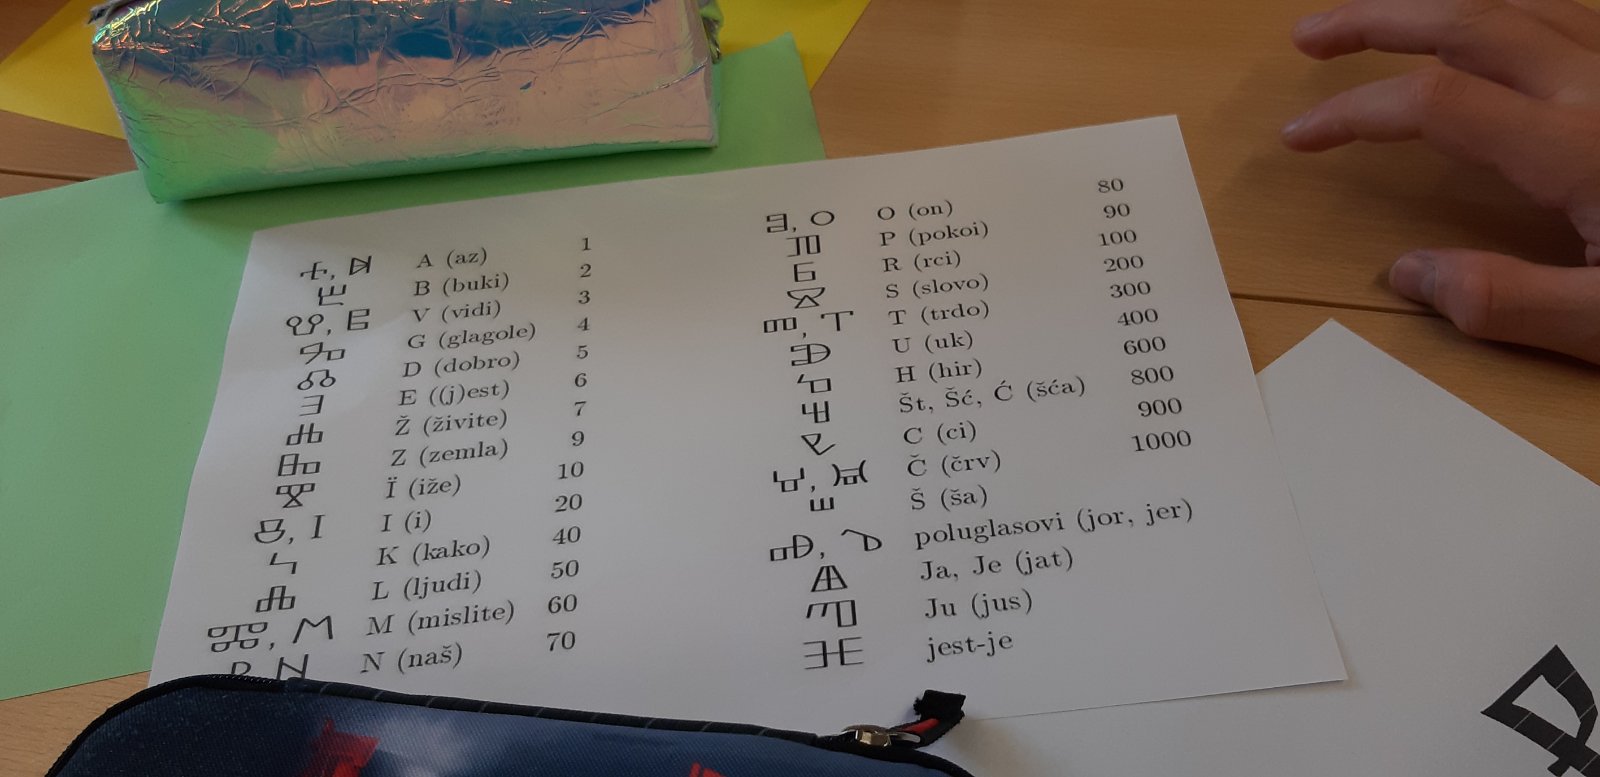 Ⰰ A (az) 1
Ⰱ B (buki) 2
Ⰲ V (vidi) 3
Ⰳ G (glagole) 4
Ⰴ D (dobro) 5
Ⰵ E ((j)est) 6
Ⰶ Ž (živite) 7
Ⰸ Z (zemla) 9
Ⰹ Ï (iže) 10
Ⰻ, I (i) 20
Ⰽ K (kako) 40
Ⰾ L (ljudi) 50
Ⰿ, M (mislite) 60
N (naš) 70
Ⱁ, O (on) 80
Ⱂ P (pokoi) 90
Ⱃ R (rci) 100
Ⱄ S (slovo) 200
Ⱅ, T (trdo) 300
Ⱆ U (uk) 400
Ⱈ H (hir) 600
Ⱋ Št, Šć, Ć (šća) 800
Ⱌ C (ci) 900
Ⱍ, Č (črv) 1000
Ⱎ Š (ša)
poluglasovi (jor, jer)
Ⱑ Ja, Je (jat)
Ⱓ Ju (jus)
jest-je